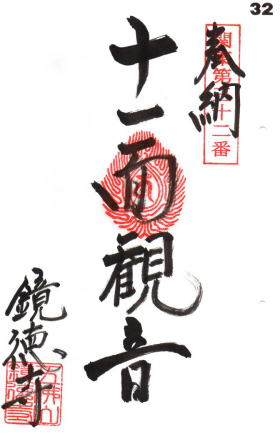 32
奉納
関東第三十二番
十一面観音
鏡徳寺